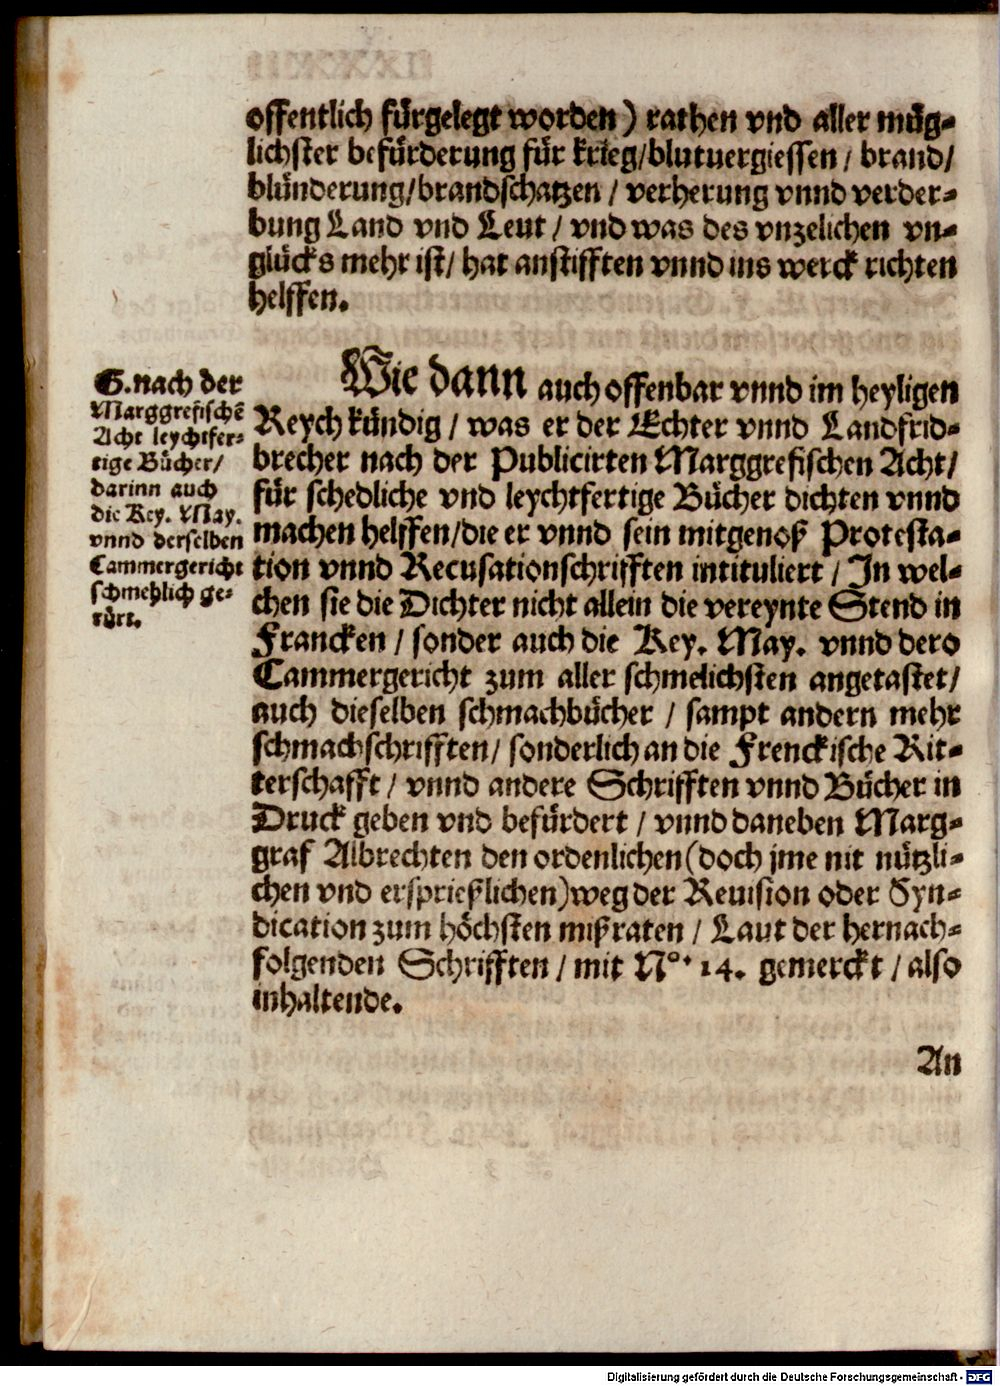 offentlich fürgelegt worden) rathen vnd aller müg-
lichster befürderung für krieg/blutuergiessen / brand/
blünderung/brandschatzen / verherung vnnd verder-
bung Land vnd Leut / vnd was des vnzelichen vn-
glücks mehr ist/ hat anstifften vnnd ins werck richten
helffen.
G. nach der
Marggrefischē
Acht leychtfer-
tige Bücher/
darinn auch
die Key. May.
vnnd derselben
Cammergericht
schmehlich ge-
rürt.
Wie dann auch offenbar vnnd im heyligen
Reych kündig / was er der Echter vnnd Landfrid-
brecher nach der Publicirten Marggrefischen Acht/
für schedliche vnd leychtfertige Bücher dichten vnnd
machen helffen/die er vnnd sein mitgenoß Protesta-
tion vnnd Recusationschrifften intituliert / In wel-
chen sie die Dichter nicht allein die vereynte Stend in
Francken / sonder auch die Key. May. vnnd dero
Cammergericht zum aller schmelichsten angetastet/
auch dieselben schmachbücher / sampt andern mehr
schmachschrifften/ sonderlich an die Frenckische Rit-
terschafft / vnnd andere Schrifften vnnd Bücher in
Druck geben vnd befürdert / vnnd daneben Marg-
graf Albrechten den ordenlichen (doch jme nit nützli-
chen vnd ersprießlichen) weg der Reuision oder Syn-
dication zum höchsten mißraten / Laut der hernach-
folgenden Schrifften / mit No. 14. gemerckt / also
inhaltende.
An
Digitalisierung gefördert durch die Deutsche Forschungsgemeinschaft - DFG